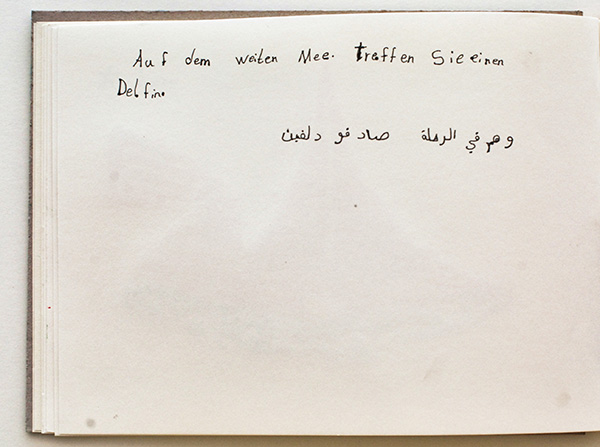 Auf dem weiten Mee. treffen Sie einen
Delfin.
وهم في الرحلة صاد فو دلفين